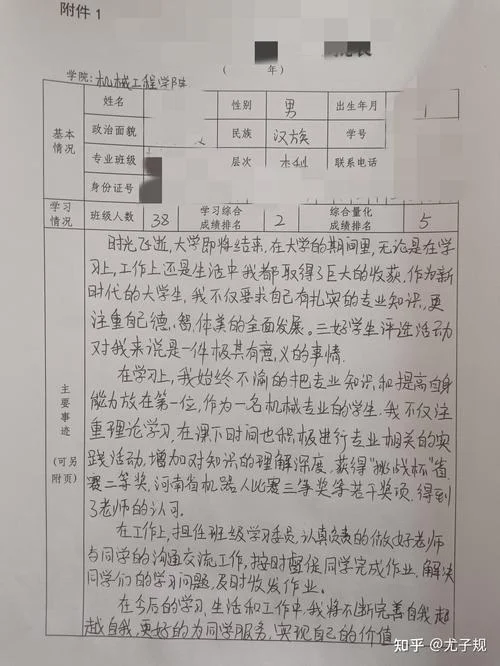 附件1
( 年)
学院:机械工程学院
基本情况 姓名 性别 男 出生年月
政治面貌 民族 汉族 学号
专业班级 层次 本科 联系电话
身份证号
学习情况 班级人数 38 学习综合成绩排名 2 综合量化成绩排名 5
主要事迹(可另附页)
时光飞逝,大学即将结束,在大学的期间里,无论是在学
习上,工作上还是生活中我都取得了巨大的收获,作为新
时代的大学生,我不仅要求自己有扎实的专业知识,更
注重自己德、智、体美的全面发展。三好学生评选活动
对我来说是一件极其有意义的事情.
在学习上,我始终不渝的把专业知识和提高自身
能力放在第一位,作为一名机械专业的学生,我不仅注
重理论学习,在课下时间也积极进行专业相关的实
践活动,增加对知识的理解深度,获得"挑战杯"省
赛二等奖,河南省机器人比赛三等奖等若干奖项,得到
了老师的认可。
在工作上,担任班级学习委员,认真负责的做好老师
与同学的沟通交流工作,按时督促同学完成作业,解决
同学们的学习问题,及时收发作业。
在今后的学习,生活和工作中,我将不断完善自我,超
越自我,更好的为同学服务,实现自己的价值
知乎 @尤子规